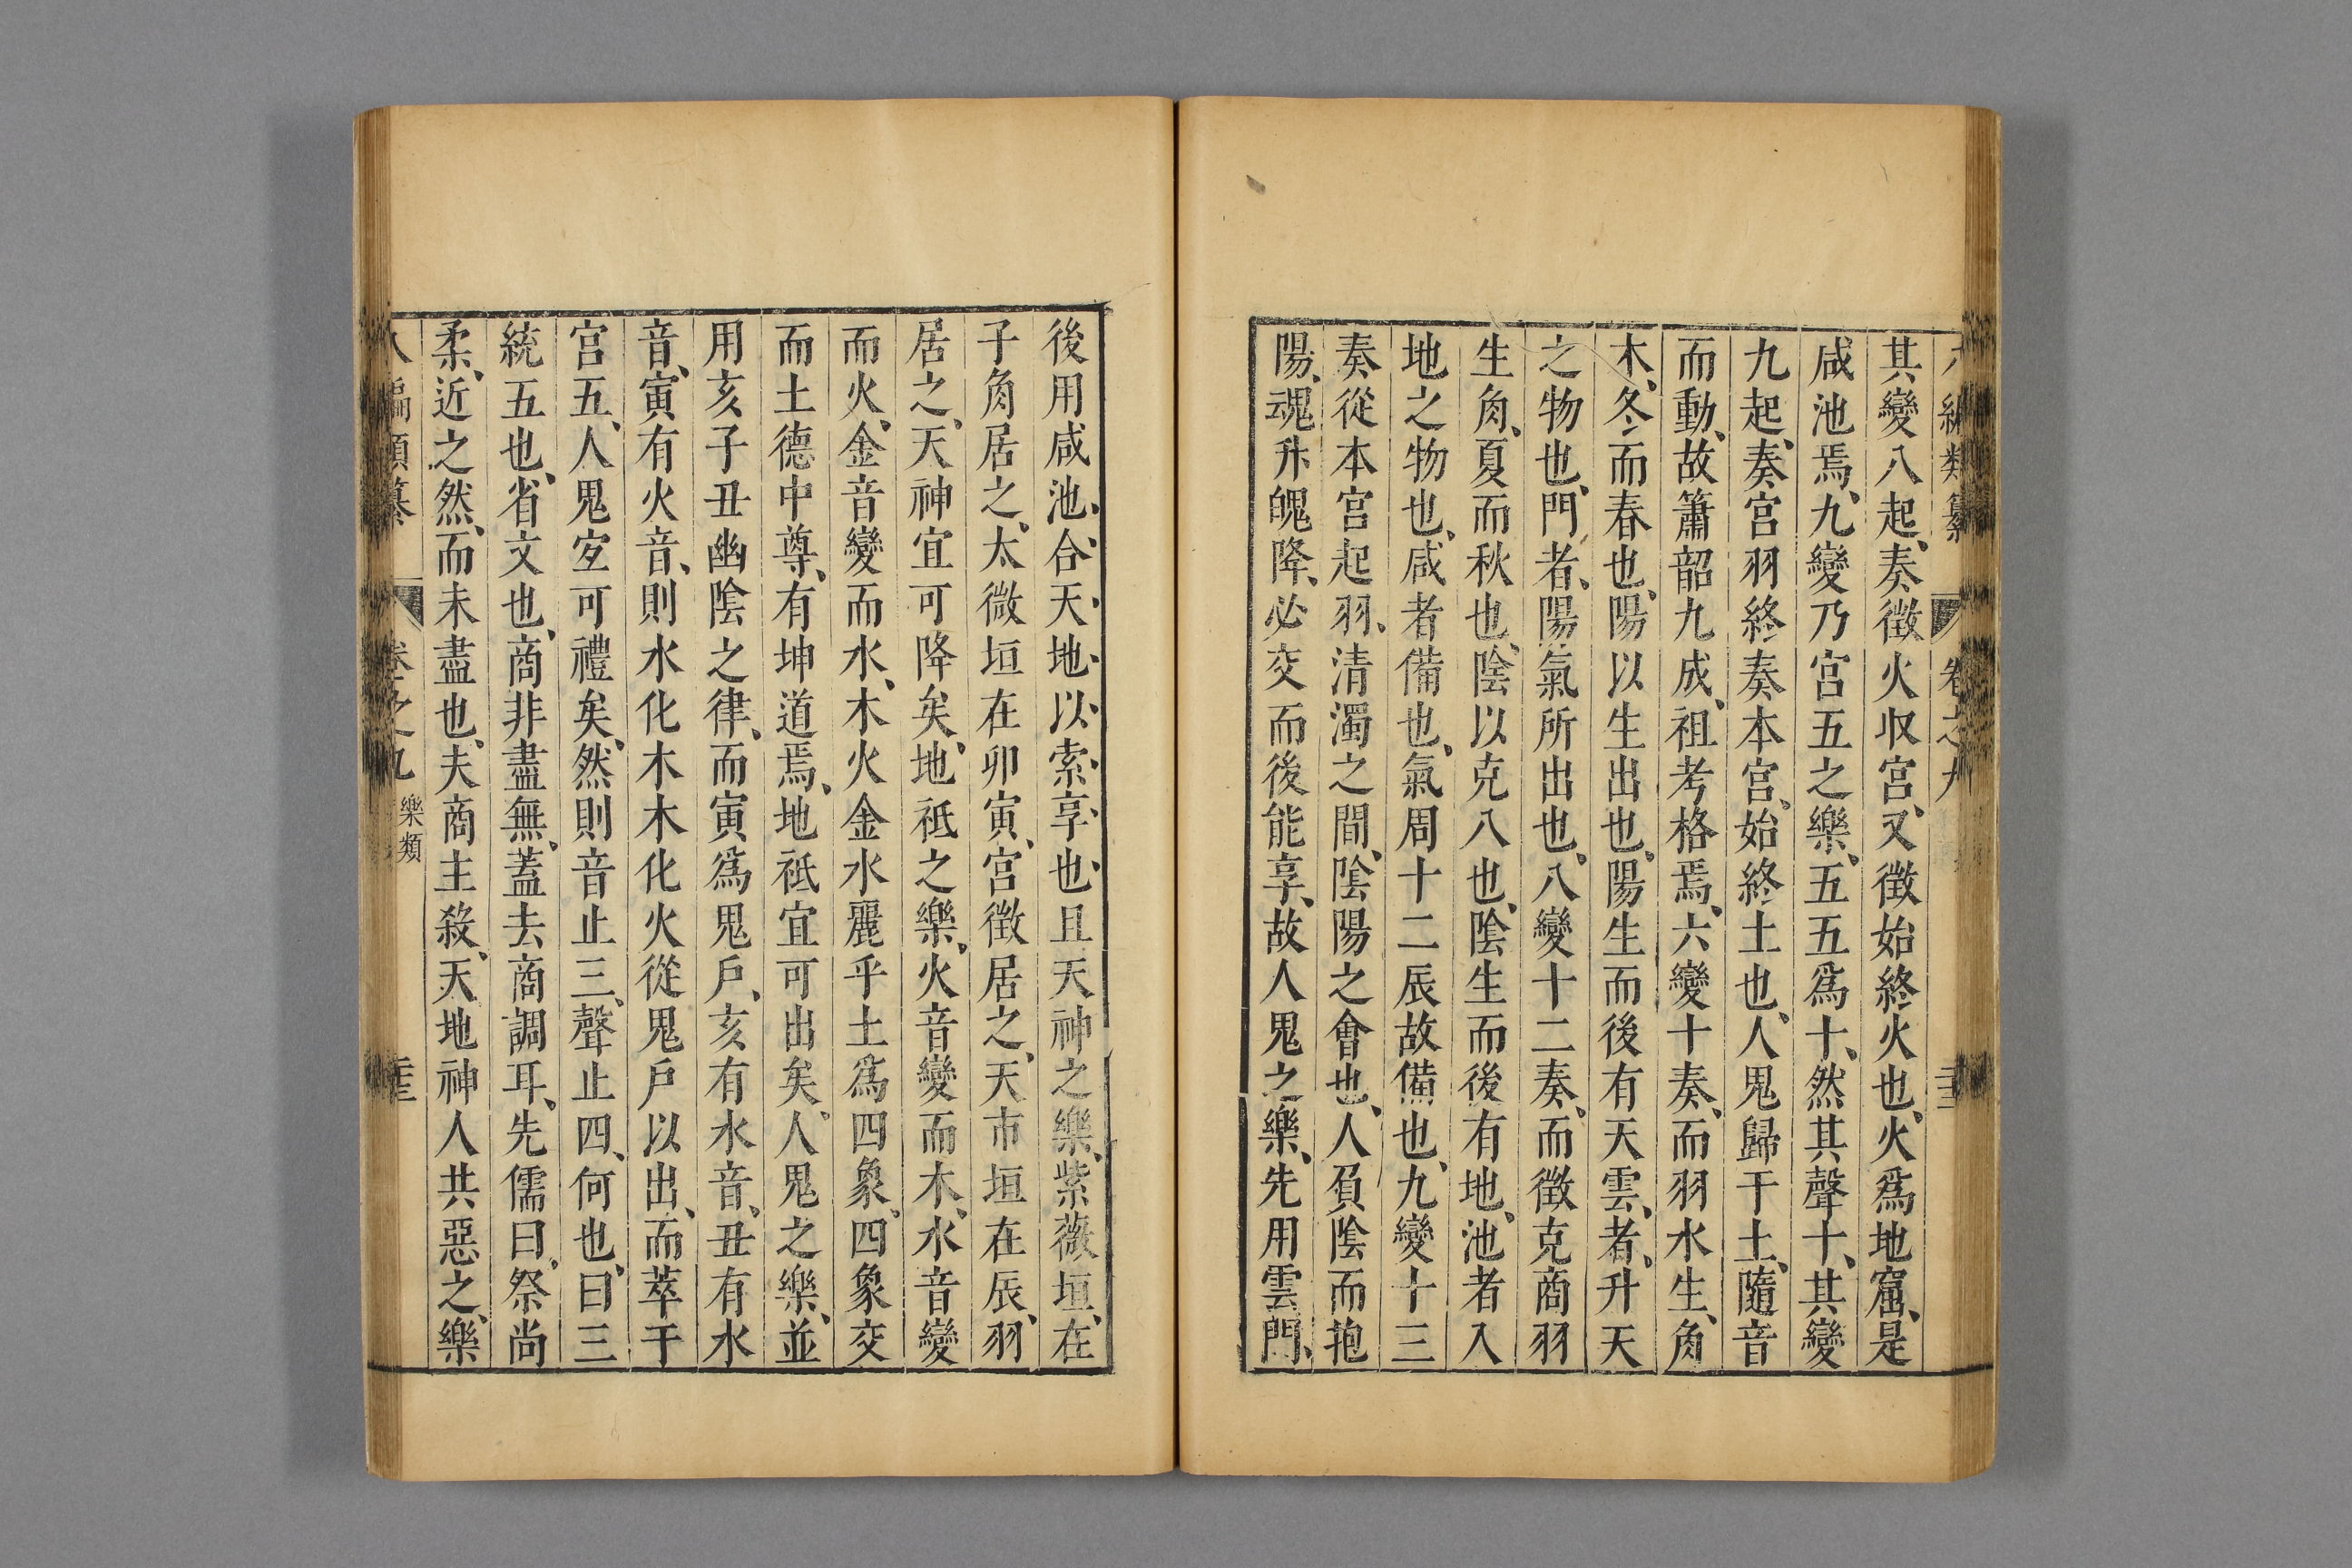 其變八起、奏徵火収宮、又徵始終火也、火爲地窟、是
咸池焉、九變乃宮五之樂、五五爲十、然其聲十、其變
九起、奏宮羽終奏本宮、始終土也、人鬼歸于土、隨音
而動、故簫韶九成、祖考格焉、六變十奏、而羽水生、角
木、冬而春也、陽以生出也、陽生而後有天雲、者、升天
之物也、門者、陽氣所出也、八變十二奏、而徵克商羽
生角、夏而秋也、陰以克入也、陰生而後有地、池者入
地之物也、咸者備也、氣周十二辰故備也、九變十三
奏從本宮起羽、清濁之間、陰陽之會也、人負陰而抱
陽、魂升魄降、必交而後能享、故人鬼之樂、先用雲門、
後用咸池、合天地以索享也、且天神之樂、紫薇垣、在
子角居之、太微垣在卯寅、宮徵居之、天市垣在辰、羽
居之、天神宜可降矣、地祇之樂、火音變而木、水音變
而火、金音變而水、木火金水麗乎土爲四象、四象交
而土德中尊、有坤道焉、地祇宜可出矣、人鬼之樂、並
用亥子丑幽陰之律、而寅爲鬼戶、亥有水音、丑有水
音、寅有火音、則水化木木化火從鬼戶以出、而萃于
宮五、人鬼宜可禮矣、然則音止三、聲止四、何也、曰三
統五也、省文也、商非盡無、蓋去商調耳、先儒曰、祭尚
柔、近之然、而未盡也、夫商主殺、天地神人共惡之、樂
八編類纂 卷之九 樂類